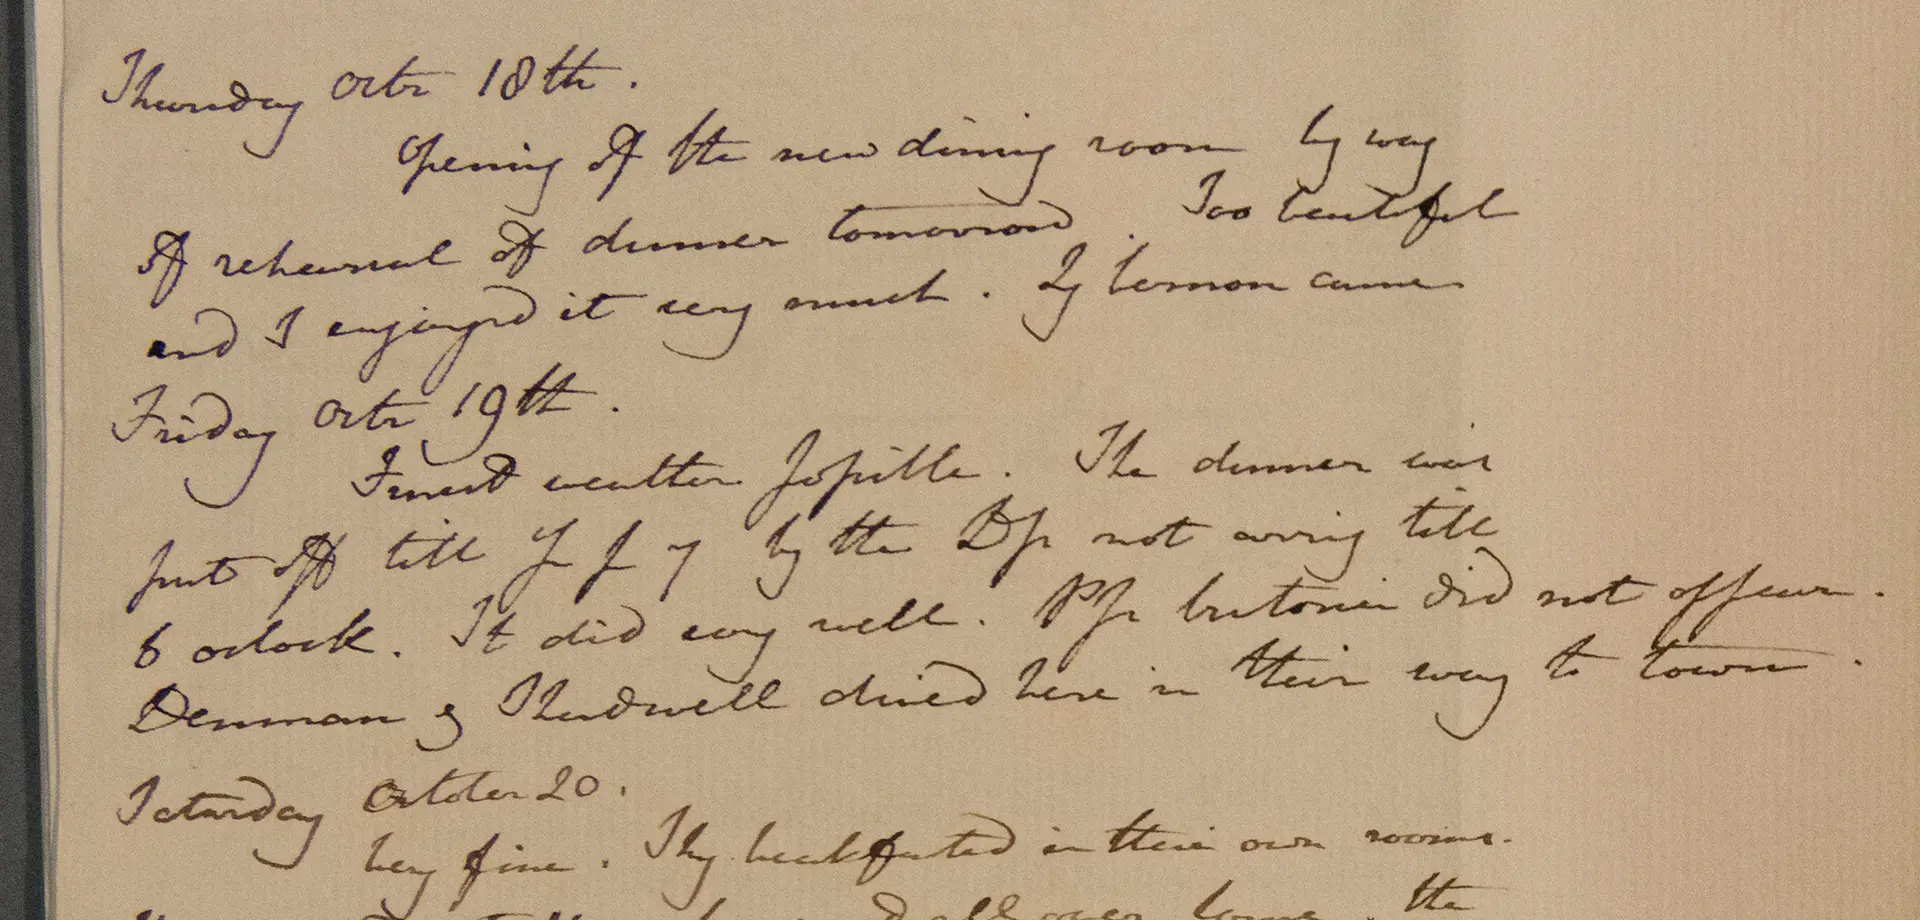 Thursday Octr 18th.
Opening of the new dining room by way
of rehearsal of dinner tomorrow. Too beautiful
and I enjoyed it very much. Ly Vernon came
Friday Octr 19th.
Finest weather possible. The dinner was
put off till 7 by the Dss not arrivg till
6 oclock. It did very well. Pss did not appear.
Denman & Thadwell dined here in their way to town.
Saturday October 20.
Very fine. They breakfasted in their own rooms.
all over the